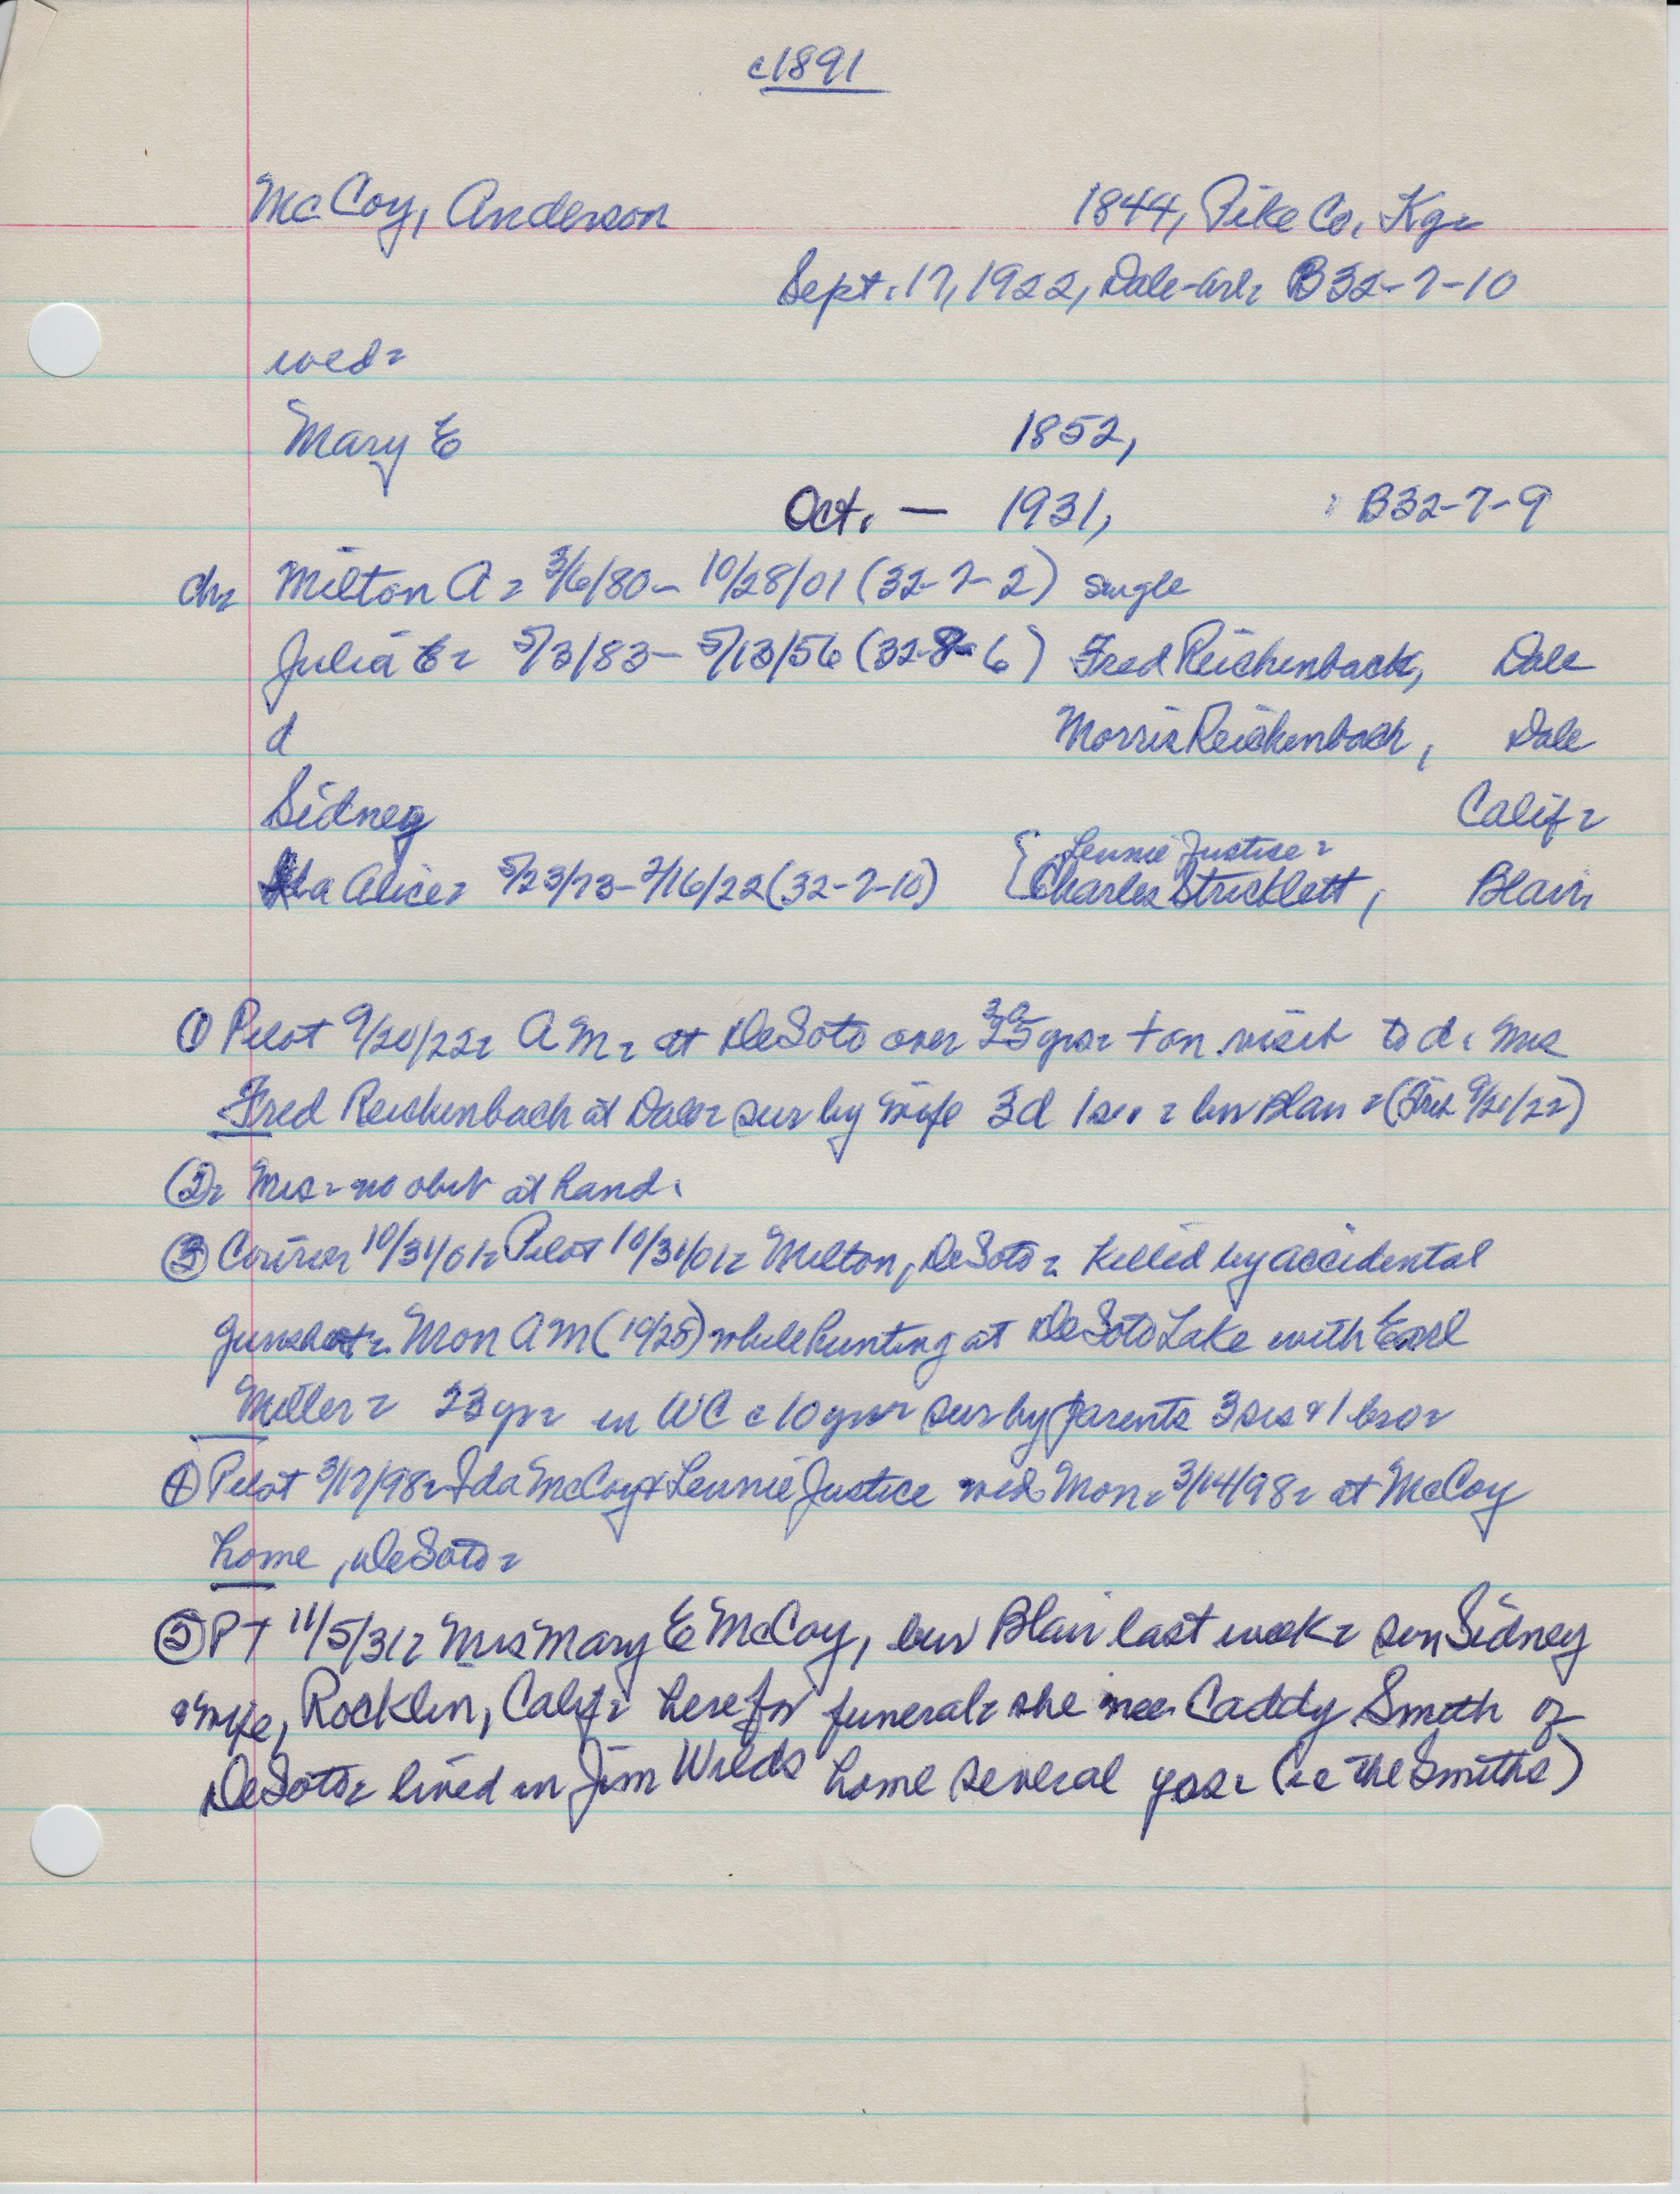 c1891
McCoy, Anderson 1844, Pike Co, Ky-
Sept. 17, 1922, Dale-Arl- B32-7-10
wed-
Mary E 1852,
Oct. — 1931, B32-7-9
ch- Milton A - 3/6/80 - 10/28/01 (32-7-2) single
Julia E- 5/3/83 - 5/13/56 (32-8-6) Fred Reichenback, Dale
d Morris Reichenbach, Dale
Sidney Calif-
Lennie Justice -
Ida Alice- 5/23/73 - 2/16/22 (32-7-10) { Charles Stricklett, Blair,
① Pilot 9/20/22- A M - at DeSoto over 25 yrs- + on visit to d. Mrs
Fred Reichenbach at Dale- sur by wife 3d 1s - bur Blair - (Trib 9/21/22)
②- Mrs - no obit at hand.
③ Courier 10/31/01- Pilot 10/31/01- Milton, DeSoto - killed by accidental
gunshot - Mon AM (10/28) while hunting at DeSoto Lake with Earl
Miller - 23 yr- in WC c 10 yrs- sur by parents 3 sis & 1 bro-
④ Pilot 3/17/98- Ida McCoy & Lennie Justice wed Mon- 3/14/98- at McCoy
home, DeSoto-
⑤ PT 11/5/31- Mrs Mary E McCoy, bur Blair last week- son Sidney
& wife, Rocklin, Calif- here for funeral- she nee Caddy Smith of
DeSoto- lived in Jim Wilds home several yrs- (ie the Smiths)